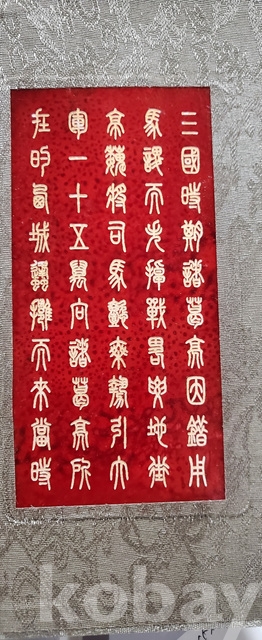 三國時期諸葛亮因錯用
馬謖而失掉戰畧要地街
亭魏將司馬懿乘勢引大
軍一十五萬向諸葛亮所
在的西城蜂擁而來當時
kobay